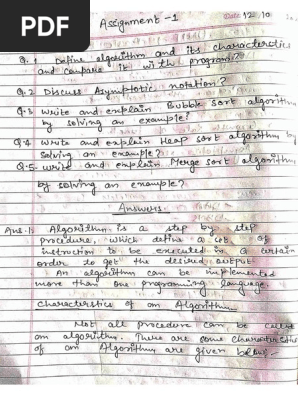 PDF
Assignment -1
Date 12 10
Q.1 Define algorithm and its characterstics
and compare it with program?
Q.2 Discuss Asymptotic notation?
Q.3 write and explain Bubble sort algorithm
by solving an example?
Q.4 write and explain Heap sort algorithm by
solving an example?
Q.5 write and explain Merge sort algorithm
by solving an example?
Answers
Ans.1) Algorithm is a step by step
procedure, which define a set of
instruction to be executed in a certain
order to get the desired output.
An algorithm can be implemented
more than one programming language.
Characterstics of an Algorithm
Not all procedure can be called
an algorithm. There are some characterstics
of an Algorithm are given below:-